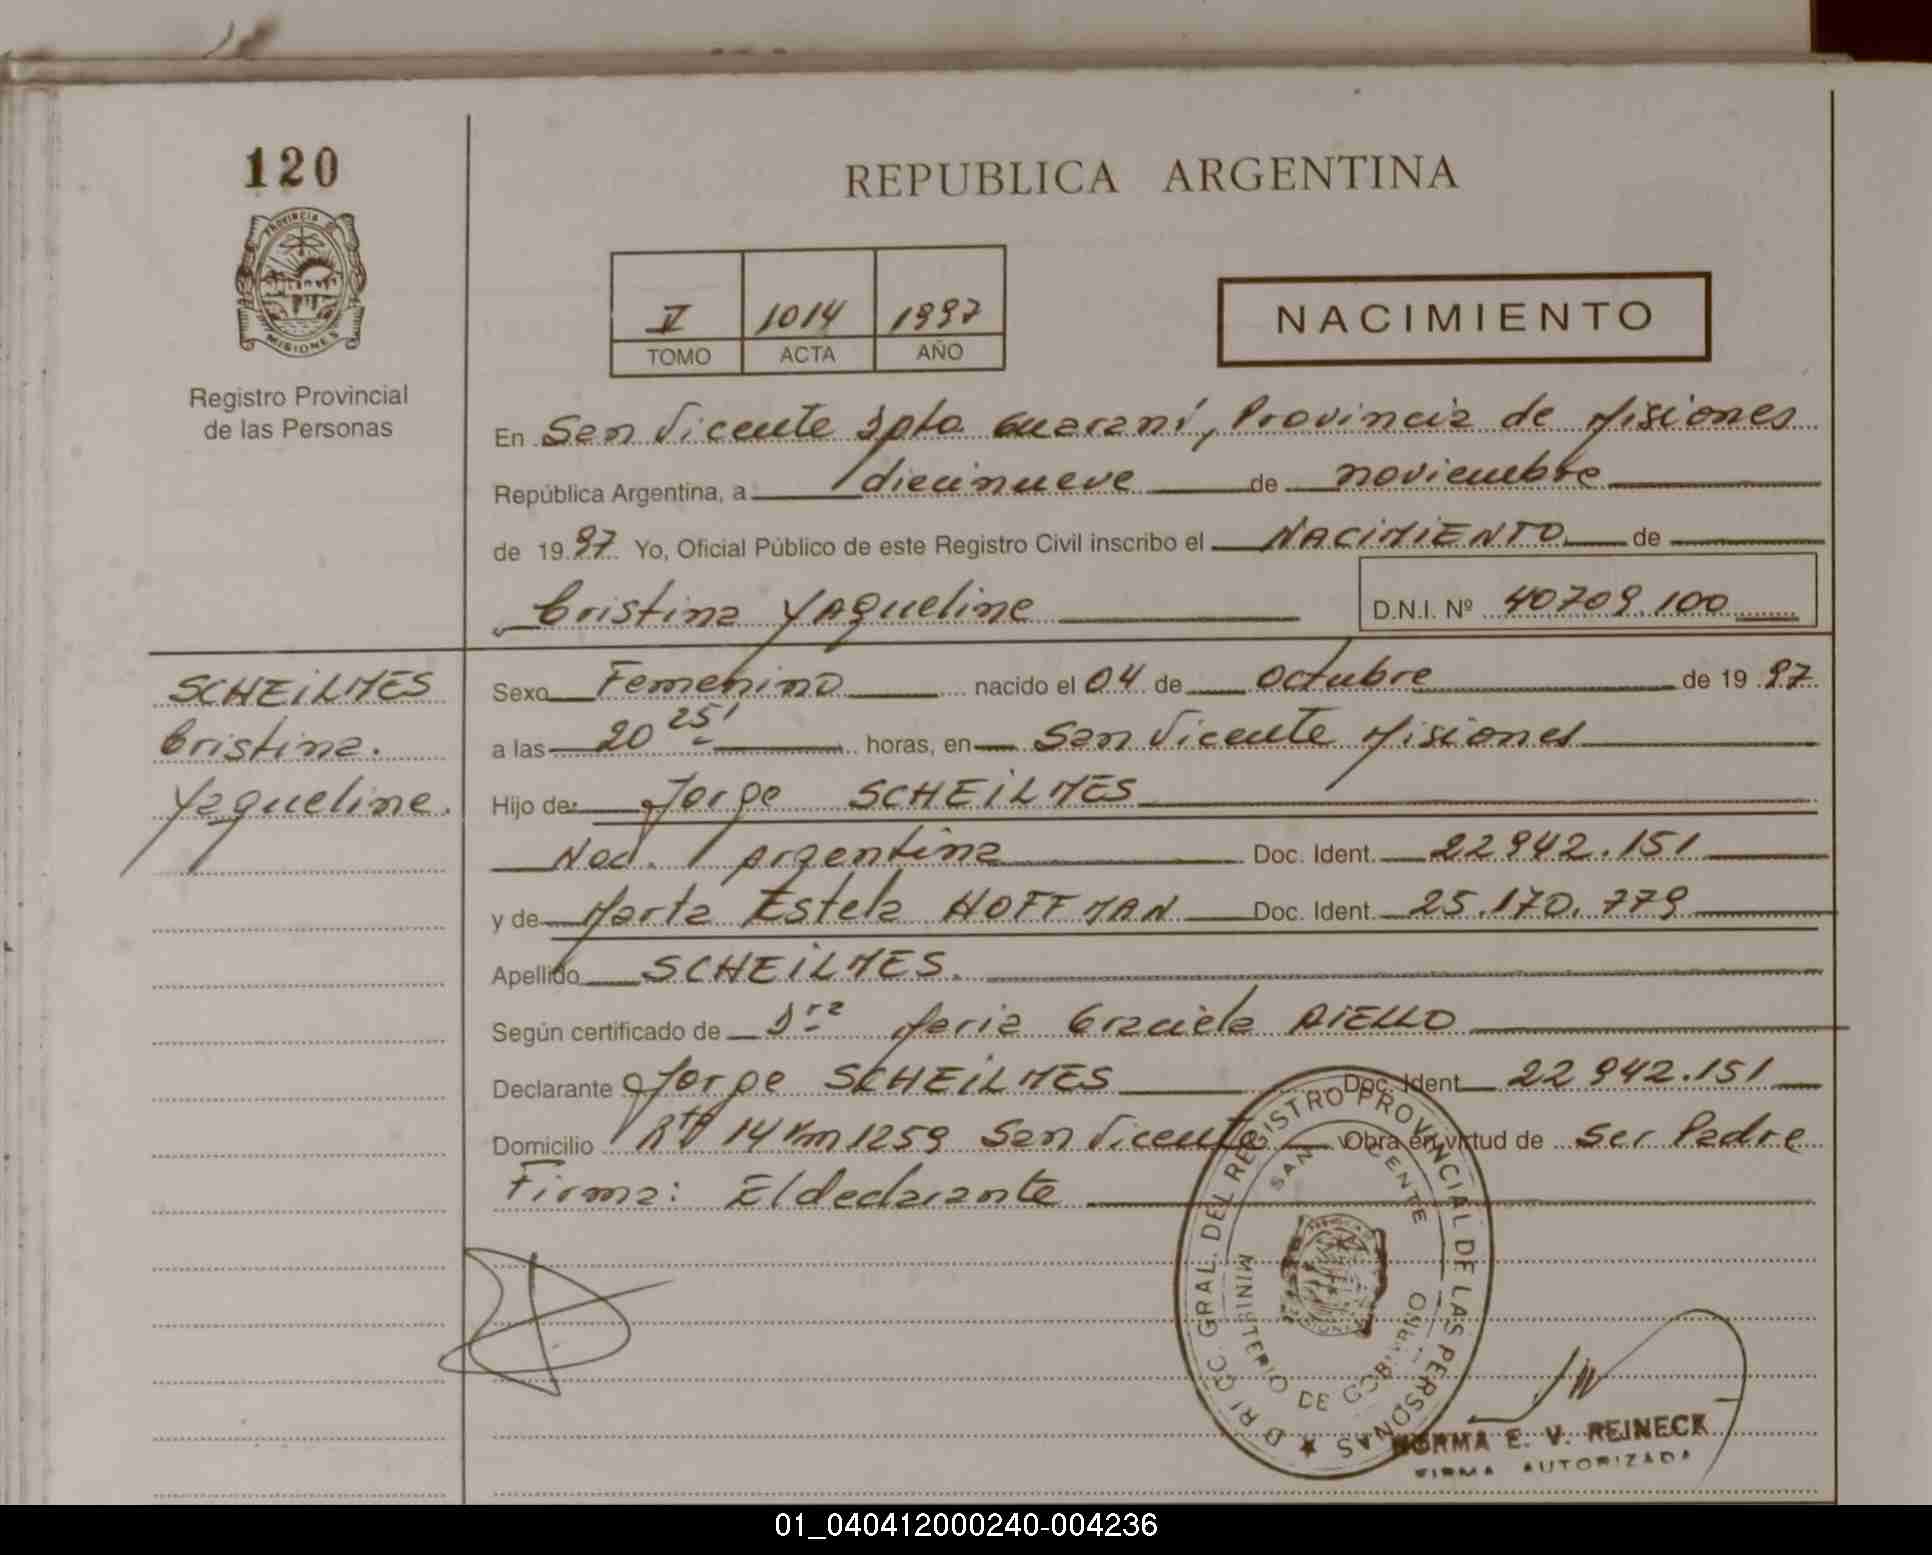 120
PROVINCIA DE
MISIONES
Registro Provincial
de las Personas
REPUBLICA ARGENTINA
V 1014 1997
TOMO ACTA AÑO
NACIMIENTO
En San Vicente Dpto Guaraní, Provincia de Misiones
República Argentina, a diecinueve de noviembre
de 1997 Yo, Oficial Público de este Registro Civil inscribo el NACIMIENTO de
Cristina Yaqueline D.N.I. Nº 40709.100
SCHEILMES
Cristina.
Yaqueline.
Sexo Femenino nacido el 04 de Octubre de 1997
a las 20 25' horas, en San Vicente Misiones
Hijo de: Jorge SCHEILMES
Nac. Argentina Doc. Ident. 22942.151
y de Marta Estela HOFFMAN Doc. Ident. 25.170.779
Apellido SCHEILMES.
Según certificado de Dra Maria Graciela AIELLO
Declarante Jorge SCHEILMES Doc. Ident. 22942.151
Domicilio Rta 14 Km 1259 San Vicente Obra en virtud de Ser Padre
Firma: El declarante
DRICC. GRAL. DEL REGISTRO PROVINCIAL DE LAS PERSONAS
SAN VICENTE
MINISTERIO DE GOBIERNO
NORMA E. V. REINECK
FIRMA AUTORIZADA
01_040412000240-004236